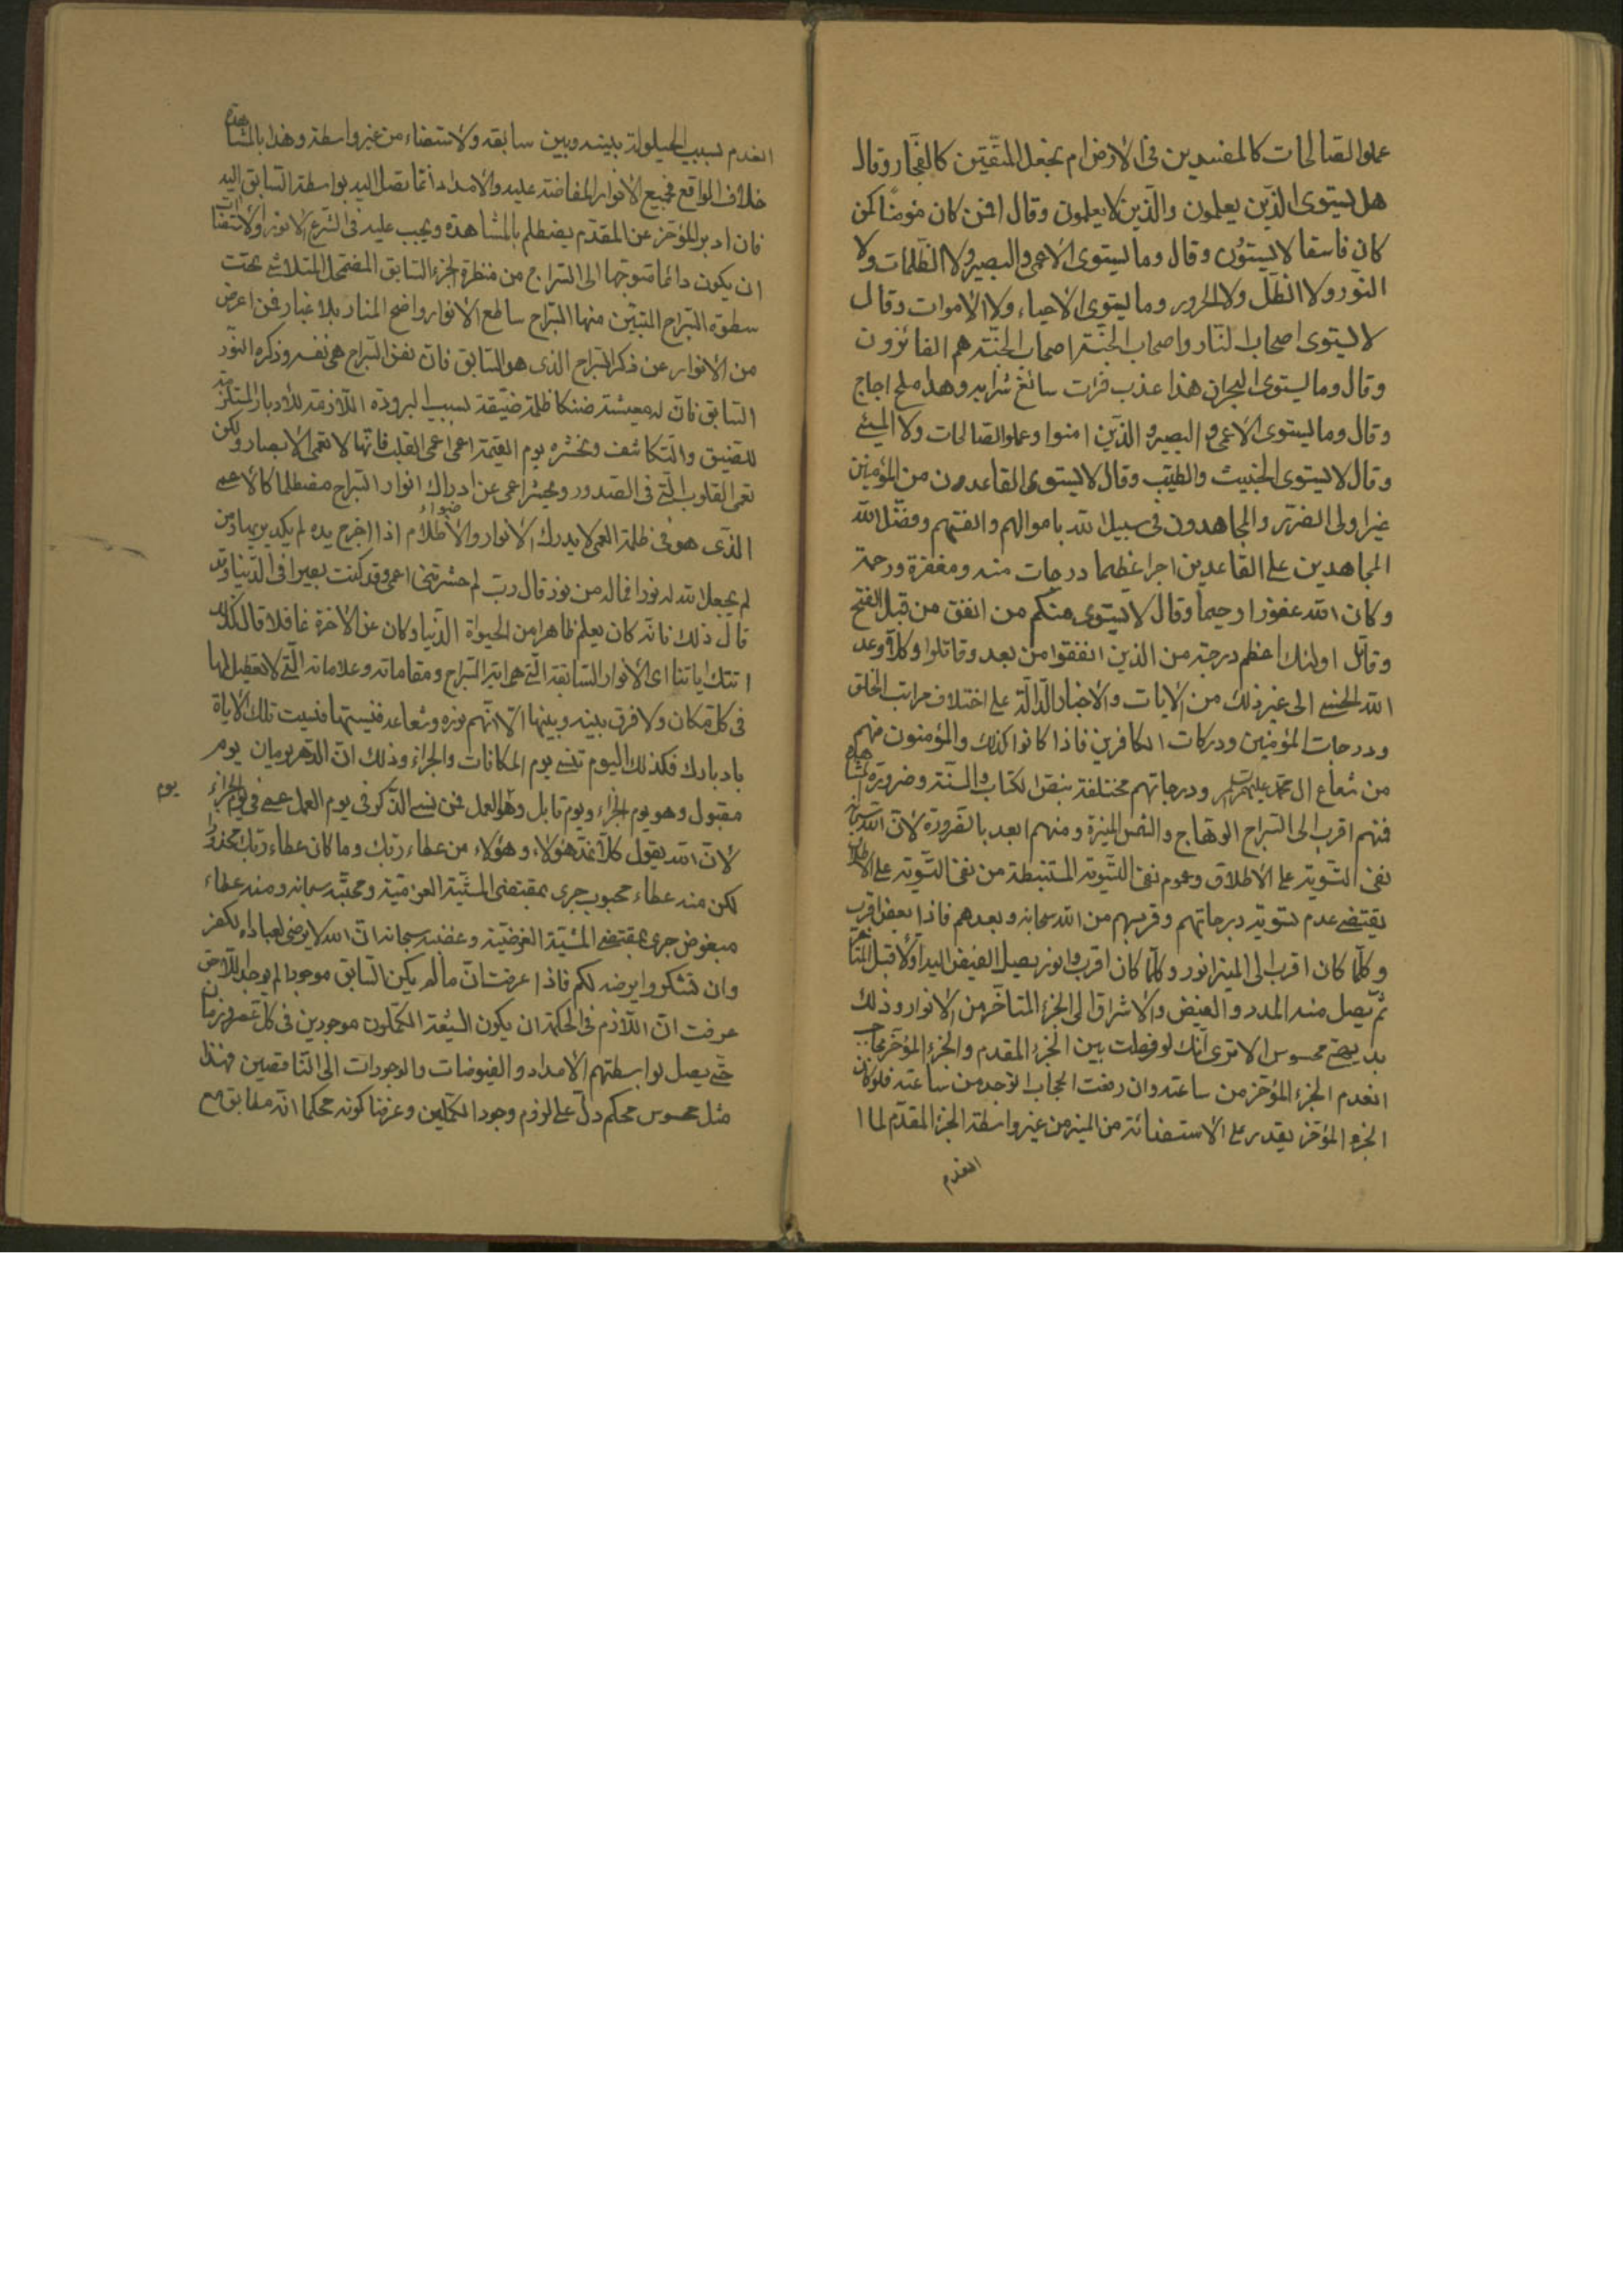 عملوا الصالحات كالمفسدين فى الأرض ام نجعل المتّقين كالفجّار وقال
هل يستوى الّذين يعلمون والّذين لا يعلمون وقال افمن كان مؤمنًا كمن
كان فاسقا لا يستوُن وقال وما يستوى الأعمى والبصير ولا الظّلمات ولا
النّور ولا الظلّ ولا الحرور وما يستوى الأحياء ولا الأموات وقال
لا يستوى اصحاب النّار واصحاب الجنّة اصحاب الجنّة هم الفائزون
وقال وما يستوى البحران هذا عذب فرات سائغ شرابه وهذا ملح اجاج
وقال وما يستوى الأعمى والبصير والّذين امنوا وعملوا الصّالحات ولا المسئ
وقال لا يستوى الخبيث والطيّب وقال لا يستوى القاعدون من المؤمنين
غير اولى الضّرر والمجاهدون فى سبيل الله باموالهم وانفسهم وفضّل الله
المجاهدين على القاعدين اجرا عظيما درجات منه ومغفرة ورحمة
وكان الله غفورا رحيما وقال لا يستوى منكم من انفق من قبل الفتح
وقاتل اولئك اعظم درجة من الّذين انفقوا من بعد وقاتلوا وكلّا وعد
الله الحسنى الى غير ذلك من الأيات والأخبار الدّالّة على اختلاف مراتب الخلق
ودرجات المؤمنين ودركات الكافرين فاذا كانوا كذلك والمؤمنون منهم
من شعاع ال محمّد عليهم السّلم ودرجاتهم مختلفة بنصّ الكتاب والسنّة وضرورة المشاهدة
فمنهم اقرب الى السّراج الوهّاج والشمس المنيرة ومنهم ابعد بالضّرورة لأنّ الله سبحانه
نفى التسّوية على الأطلاق وعموم نفى التّسوية المستنبطة من نفى التّسوية على الأطلاق
يقتضى عدم تسوية درجاتهم وقربهم من الله سبحانه وبعدهم فاذا بعض اقرب
وكلّما كان اقرب الى المنير انور وكلّما كان اقرب وانور يصل الفيض اليه أوّلا قبل
ثمّ يصل منه المدد والفيض والأشراق الى الجزء المتاخّر من الأنوار وذلك
بديهىّ محسوس الا ترى انّك لو فصلت بين الجزء المقدم والجزء المؤخّر بحاجب
انعدم الجزء المؤخّر من ساعته وان رفعت الحجاب انوجد من ساعته فلو كان
الجزء المؤخّر يقدر على الأستضائة من المنير من غير واسطة الجزء المقدّم لما
انعدم
انعدم بسبب الحيلولة بينه وبين سابقه ولأستضاء من غير واسطة وهذا بالمشاهدة
خلاف الواقع فجميع الأنوار المفاضة عليه والأمداد انّما تصل اليه بواسطة السّابق اليه
فان ادبر المؤخّر عن المقدّم يضطلم بالمشاهدة ويجب عليه فى الشّرع
ان يكون دائما متوجّها الى السّراج من منظرة الجزء السّابق المضمحل المتلاشى تحت
سطوة السّراج المتبيّن منها السّراج ساطع الأنوار واضح المنار بلا غبار فمن اعرض
من الأنوار عن ذكر السّراج الذى هو السّابق فانّ نفس السّراج هى نفسه وذكره النّور
السّابق فانّ له معيشة ضنكا ظلمة ضيّقة بسبب البرودة اللّازمة للأدبار المستلزمة
للتضيق والتّكاثف ونحشره يوم القيمة اعمى اعمى القلب فانّها لا تعمى الأبصار ولكن
تعمى القلوب الّتى فى الصّدور ويحشر اعمى عن ادراك انوار السّراج مضطلما كالأعمى
الّذى هو فى ظلمة العمى لا يدرك الأنوار والأضواء اذا اخرج يده لم يكد يريها ومن
لم يجعل الله له نورا فما له من نور قال ربّ لم حشرتنى اعمى وقد كنت بصيرا فى الدّنيا وقد
قال ذلك فانّه كان يعلم ظاهرا من الحيوة الدّنيا وكان عن الأخرة غافلا قال كذلك
اتتك اياتنا اى الأنوار السّابقة الّتى هى اية السّراج ومقاماته وعلاماته الّتى لا تعطيل لها
فى كلّ مكان ولا فرق بينه وبينها الّا انّهم نوره وشعاعه فنسيتها فنسيت تلك الأياة
بادبارك فكذلك اليوم تنسى يوم المكافات والجزاء وذلك انّ الدّهر يومان يوم
مقبول وهو يوم الجزاء ويوم قابل وهو العمل فمن نسى الذّكر فى يوم العمل عمى فى يوم الجزاء
يوم
لأنّ الله يقول كلّا نمدّ هؤلاء وهؤلاء من عطاء ربّك وما كان عطاء ربّك محذورا
لكن منه عطاء محبوب جرى بمقتضى المشيّة العزميّة ومحبّته سبحانه ومنه عطاء
مبغوض جرى بمقتضى المشيّة العرضيّة وغضبه سبحانه انّ الله لا يرضى لعباده الكفر
وان تشكروا يرضه لكم فاذا عرفت انّ ما لم يكن السّابق موجودا لم يوجد اللّاحق
عرفت انّ اللّازم فى الحكمة ان يكون الشّيعة الكمّلون موجودين فى كلّ عصر وزمان
حتّى يصل بواسطتهم الأمداد والفيوضات والوجودات الى النّاقصين فهذا
مثل محسوس محكم دلّ على لزوم وجود الكمّلين وعرفنا كونه محكما انّه مطابق مع